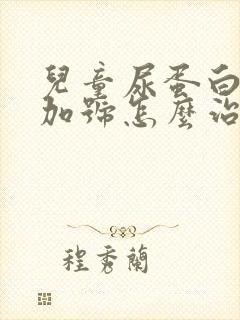 兒童尿蛋白
加號怎麼治
程秀蘭